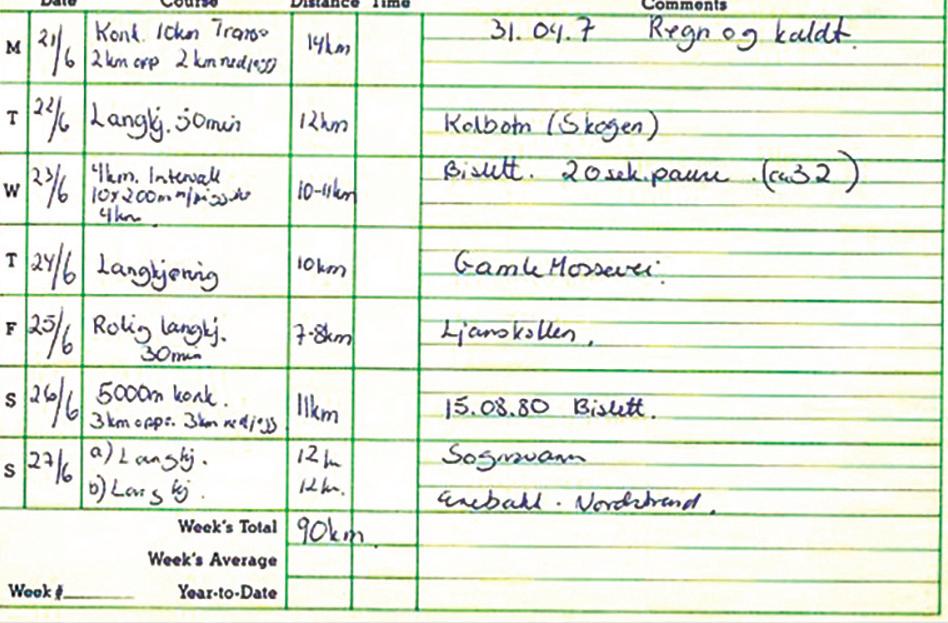 Date Course Distance Time Comments
M 21/6 Konk. 10km Trans. 14km 31.04.7 Regn og kaldt.
2km opp 2km nedjogg
T 22/6 Langkj. 50min 12km Kolbotn (Skogen)
W 23/6 4km. Intervall 10-11km Bislett. 20sek.pause. (ca 32)
10x200m
4km
T 24/6 Langkjøring 10km Gamle Mossevei.
F 25/6 Rolig langkj. 7-8km Ljanskollen.
30min
S 26/6 5000m konk. 11km 15.08.80 Bislett.
3km opp. 3km nedjogg
S 27/6 a) Langkj. 12km Sognsvann
b) Langkj. 12km. Enebakk. Nordstrand.
Week's Total 90km
Week's Average
Week # Year-to-Date